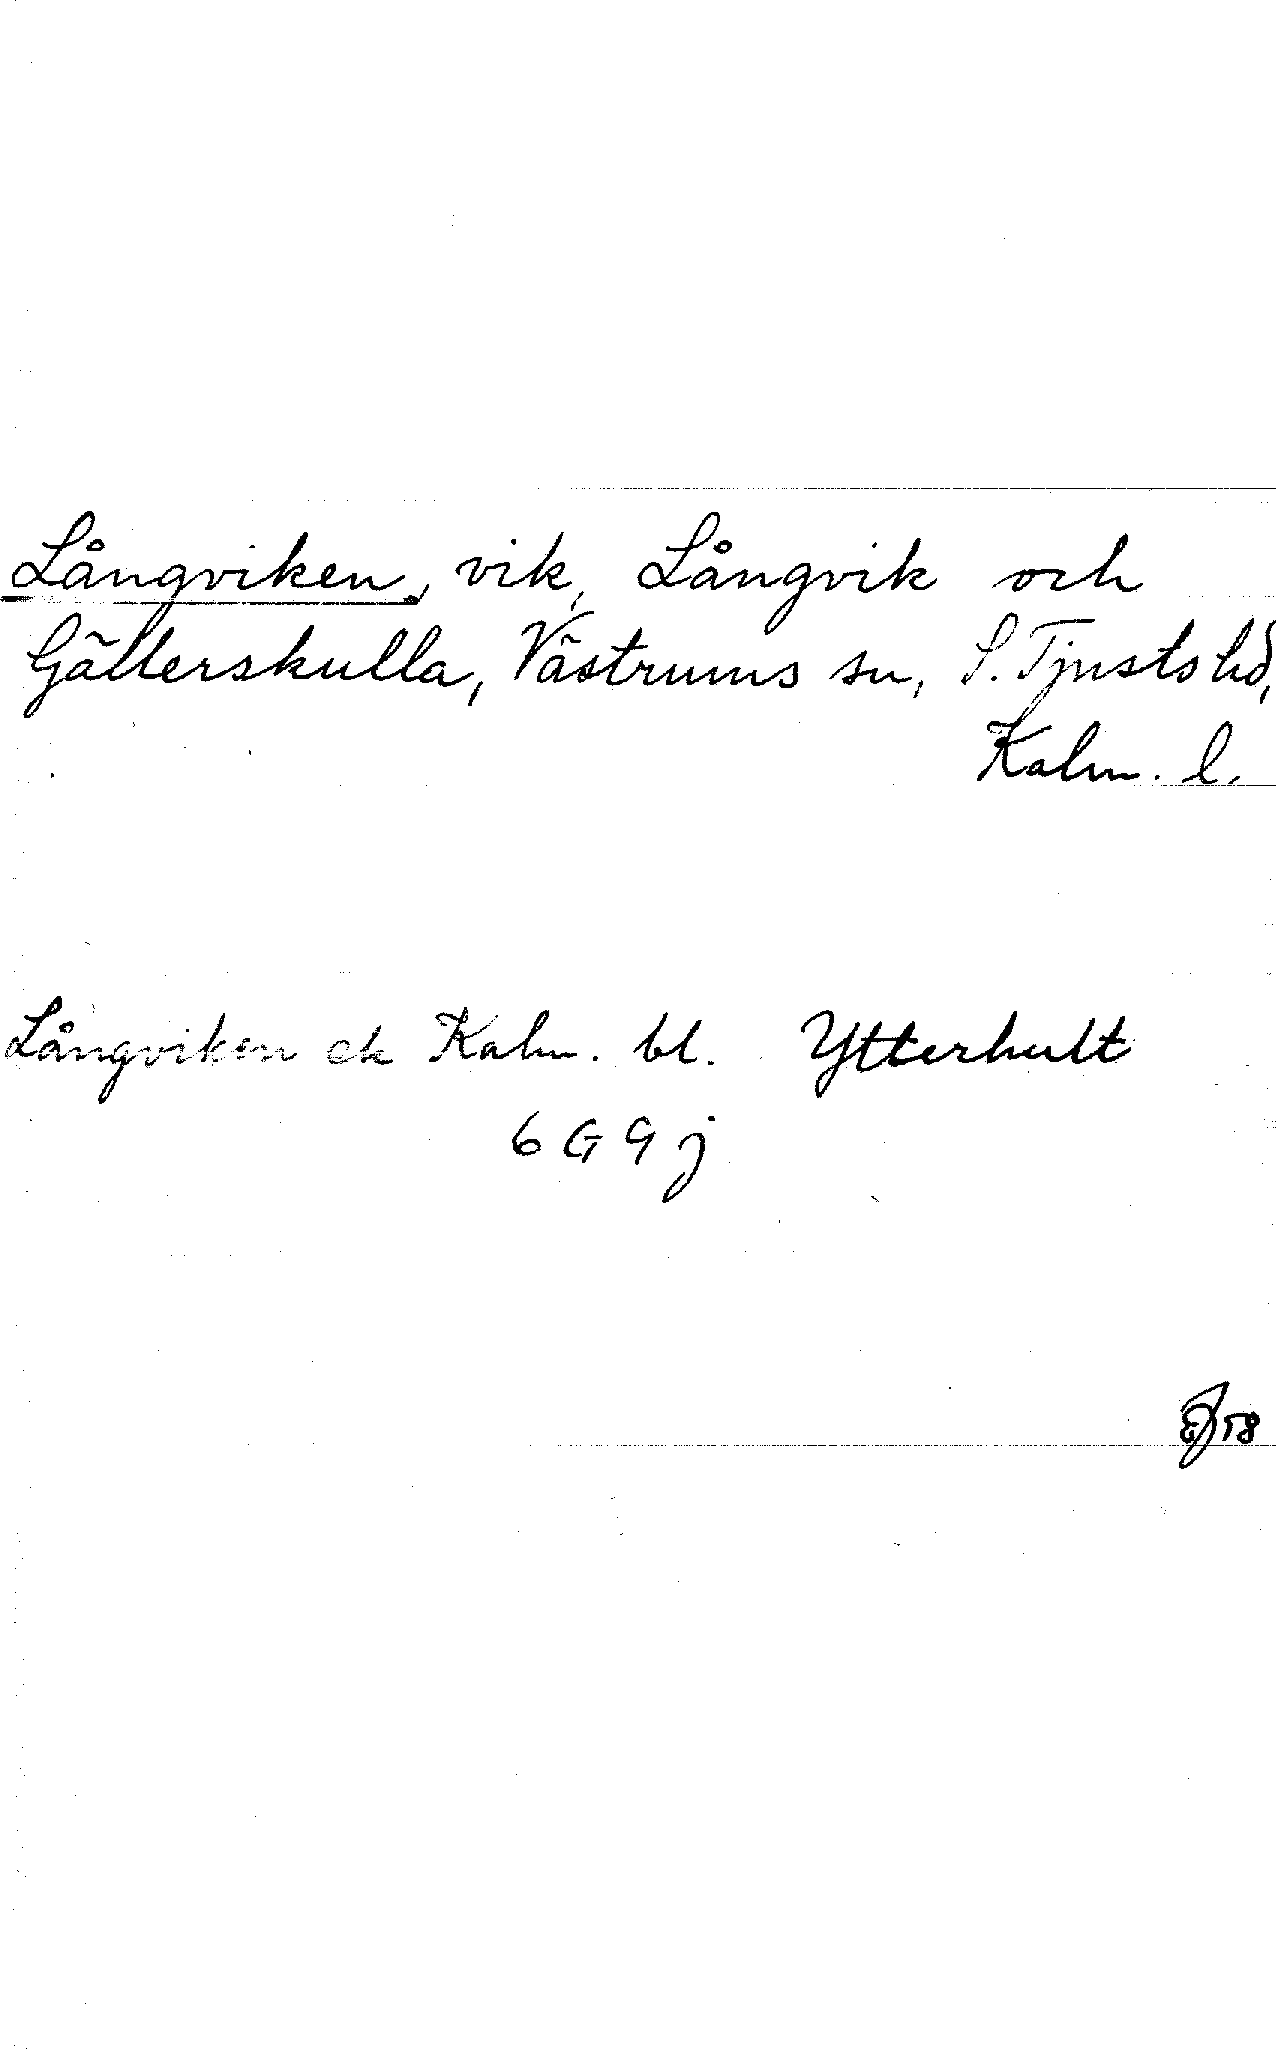 Långviken, vik, Långvik och
Gällerskulla, Västrums sn, S. Tjusts hd,
Kalm. l.
Långviken ek Kalm. bl. Ytterhult
6 G 9 j
58